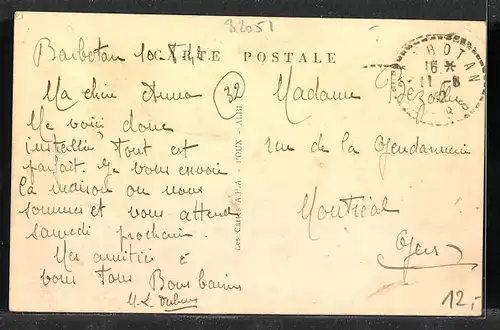 32051
CARTE POSTALE
Barbotan 10-8-42
Ma chère Anna
Me voici donc
installée tout est
parfait. Je vous envoie
la maison où nous
sommes et vous attend
samedi prochain.
Mes amitiés à
vous tous Bons bains
M. L.
32
Les Cartes A.P.A. - POUX - ALBI
BARBOTAN
16 *
11 - 8
42
Madame
rue de la Gendarmerie
Montréal
Gers
12,-